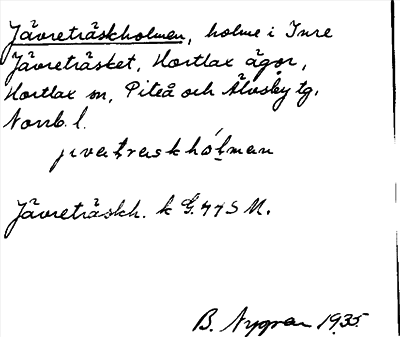 Jävreträskholmen, holme i Inre
Jävreträsket, Hortlax ägor,
Hortlax sn, Piteå och Älvsby tg.
Norrb. l.
Jävreträskh. k G. 77S M.
B. Nygren 1935.